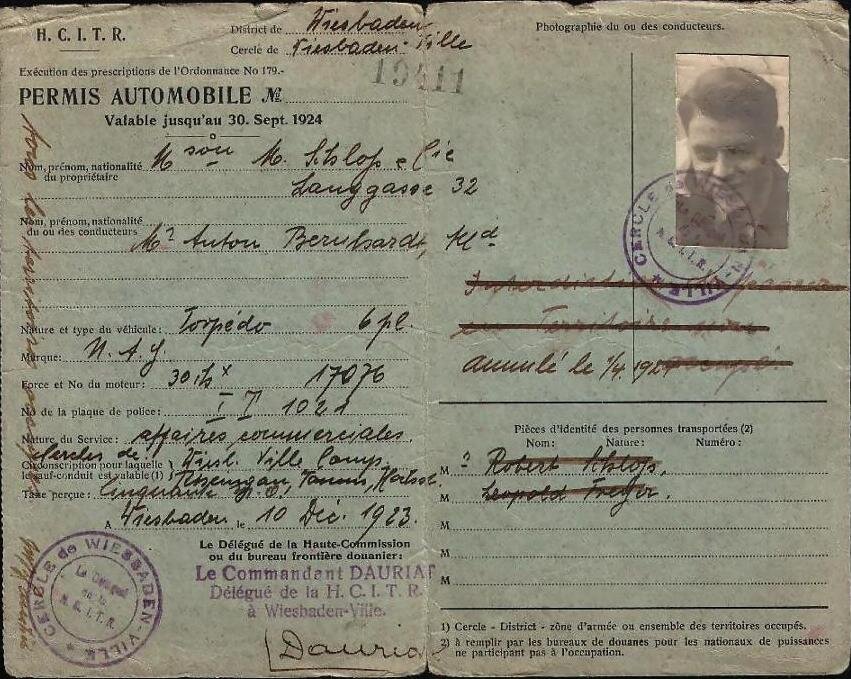 H. C. I. T. R.
District de Wiesbaden
Cercle de Wiesbaden-Ville
Exécution des prescriptions de l'Ordonnance No 179.-
19411
PERMIS AUTOMOBILE №
Valable jusqu'au 30. Sept. 1924
Nom, prénom, nationalité du propriétaire
Mson M. Schloss & Cie
Langgasse 32
Nom, prénom, nationalité du ou des conducteurs
Mr Anton Bernhardt, Alld
Nature et type du véhicule: Torpédo 6 pl.
Marque: N. A. G.
Force et No du moteur: 30 17076
No de la plaque de police: I T 1021
Nature du Service: affaires commerciales.
Cercles de:
Circonscription pour laquelle le sauf-conduit est valable (1) Wiesb. Ville Camp.
Taunus, Höchst
Taxe perçue: Cinquante
A Wiesbaden le 10 Déc. 1923.
Le Délégué de la Haute-Commission
ou du bureau frontière douanier:
Le Commandant DAURIA
Délégué de la H. C. I. T. R.
à Wiesbaden-Ville.
Dauria
CERCLE de WIESBADEN-VILLE
Le Délégué
de la
H. C. I. T. R.
Photographie du ou des conducteurs.
CERCLE de WIESBADEN-VILLE
H. C. I. T. R.
en Territoire
annulé le 1/4.
Pièces d'identité des personnes transportées (2)
Nom: Nature: Numéro:
M Robert Schloss,
M Leopold
M
M
M
1) Cercle - District - zône d'armée ou ensemble des territoires occupés.
2) à remplir par les bureaux de douanes pour les nationaux de puissances
ne participant pas à l'occupation.